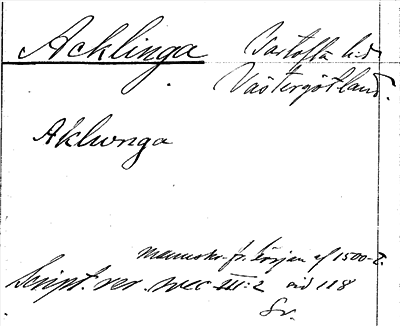 Acklinga Vartofta hd
Västergötland.
Aklunga
manuskr. fr. början af 1500-t.
Script. rer. svec III:2 sid 118
Gr.